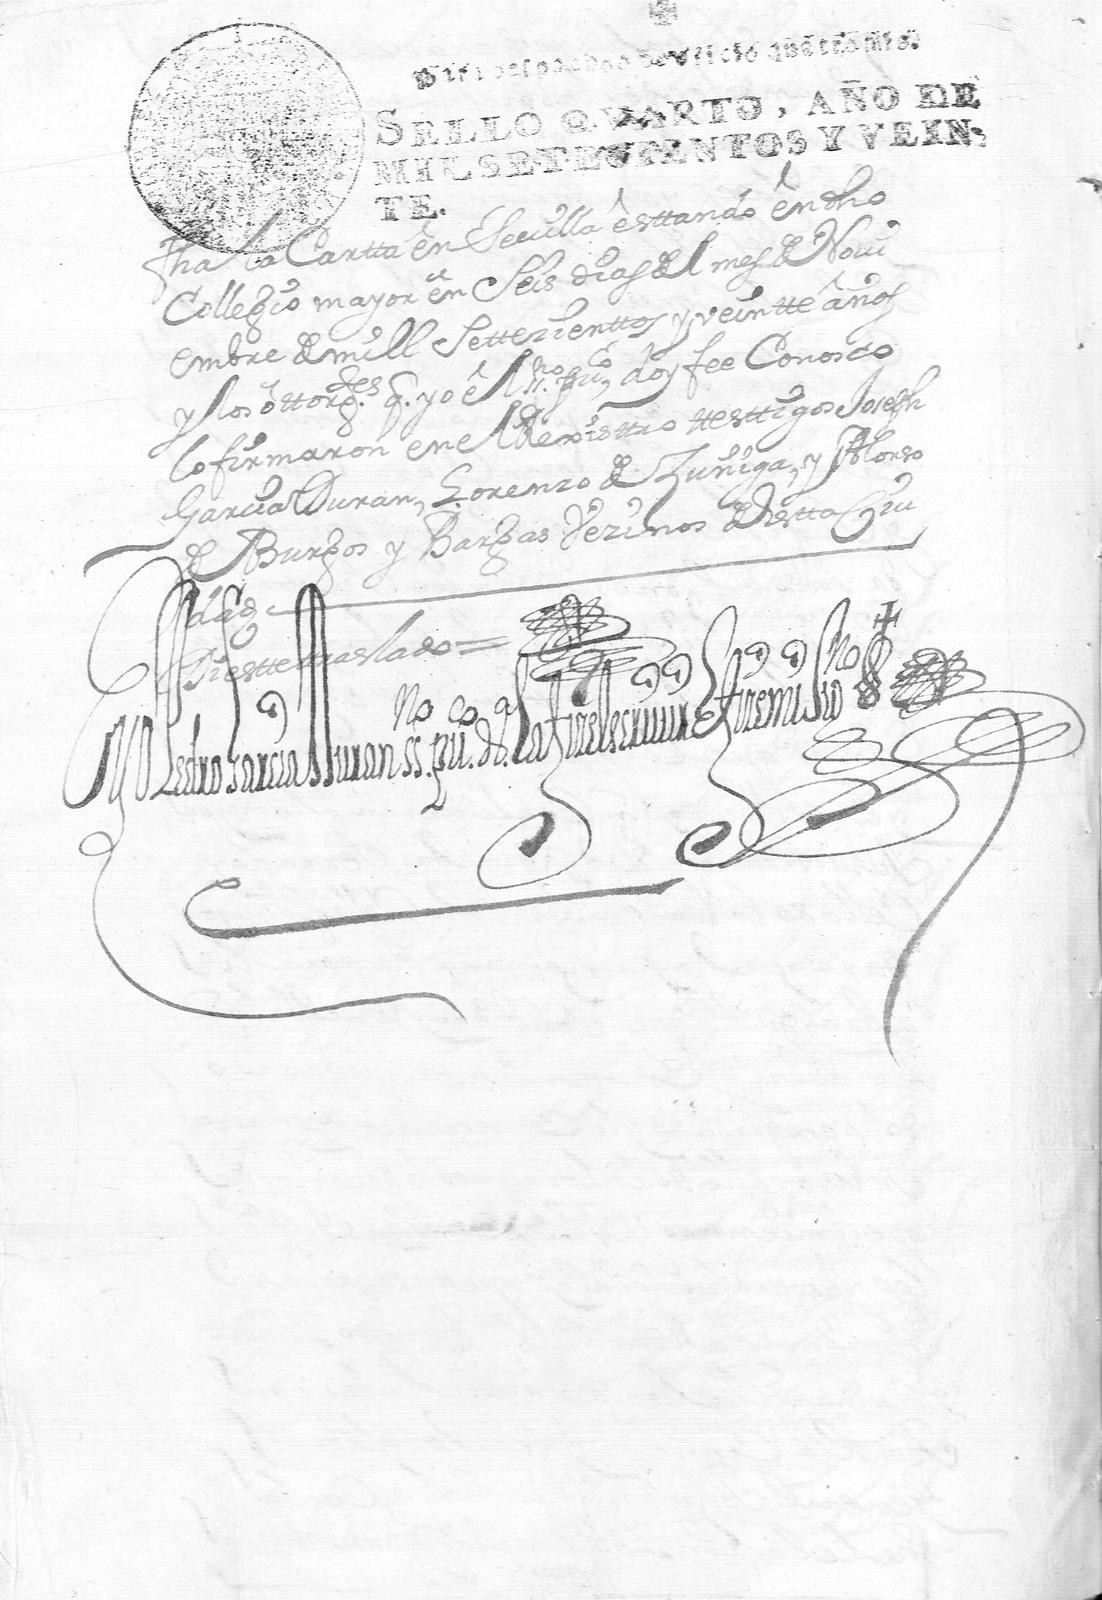 para despachos de oficio quatro mrs.
SELLO QVARTO, AÑO DE
MIL SETECIENTOS Y VEIN-
TE.
fha la Cartta en Sevilla esttando en dho
Collegio mayor en Seis dias del mes de Novi
embre de mill Settezienttos y veintte años
y los ottorg.tes q. yo el ss.no pu.co doy fee Conosco
lo firmaron en el Rexisttro testtigos Joseph
Garcia Duran, Lorenzo de Zuñiga, y Alonso
de Burgos y Bargas Vezinos de estta Ciu
dad
Di estte traslado =
Yo Pedro Garcia Duran ss.no pu.co de Sa la fize escrivir e fize mi Signo